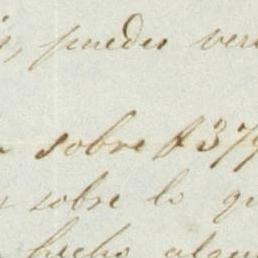 puedes ver
sobre $37
sobre lo qu
hecho algun